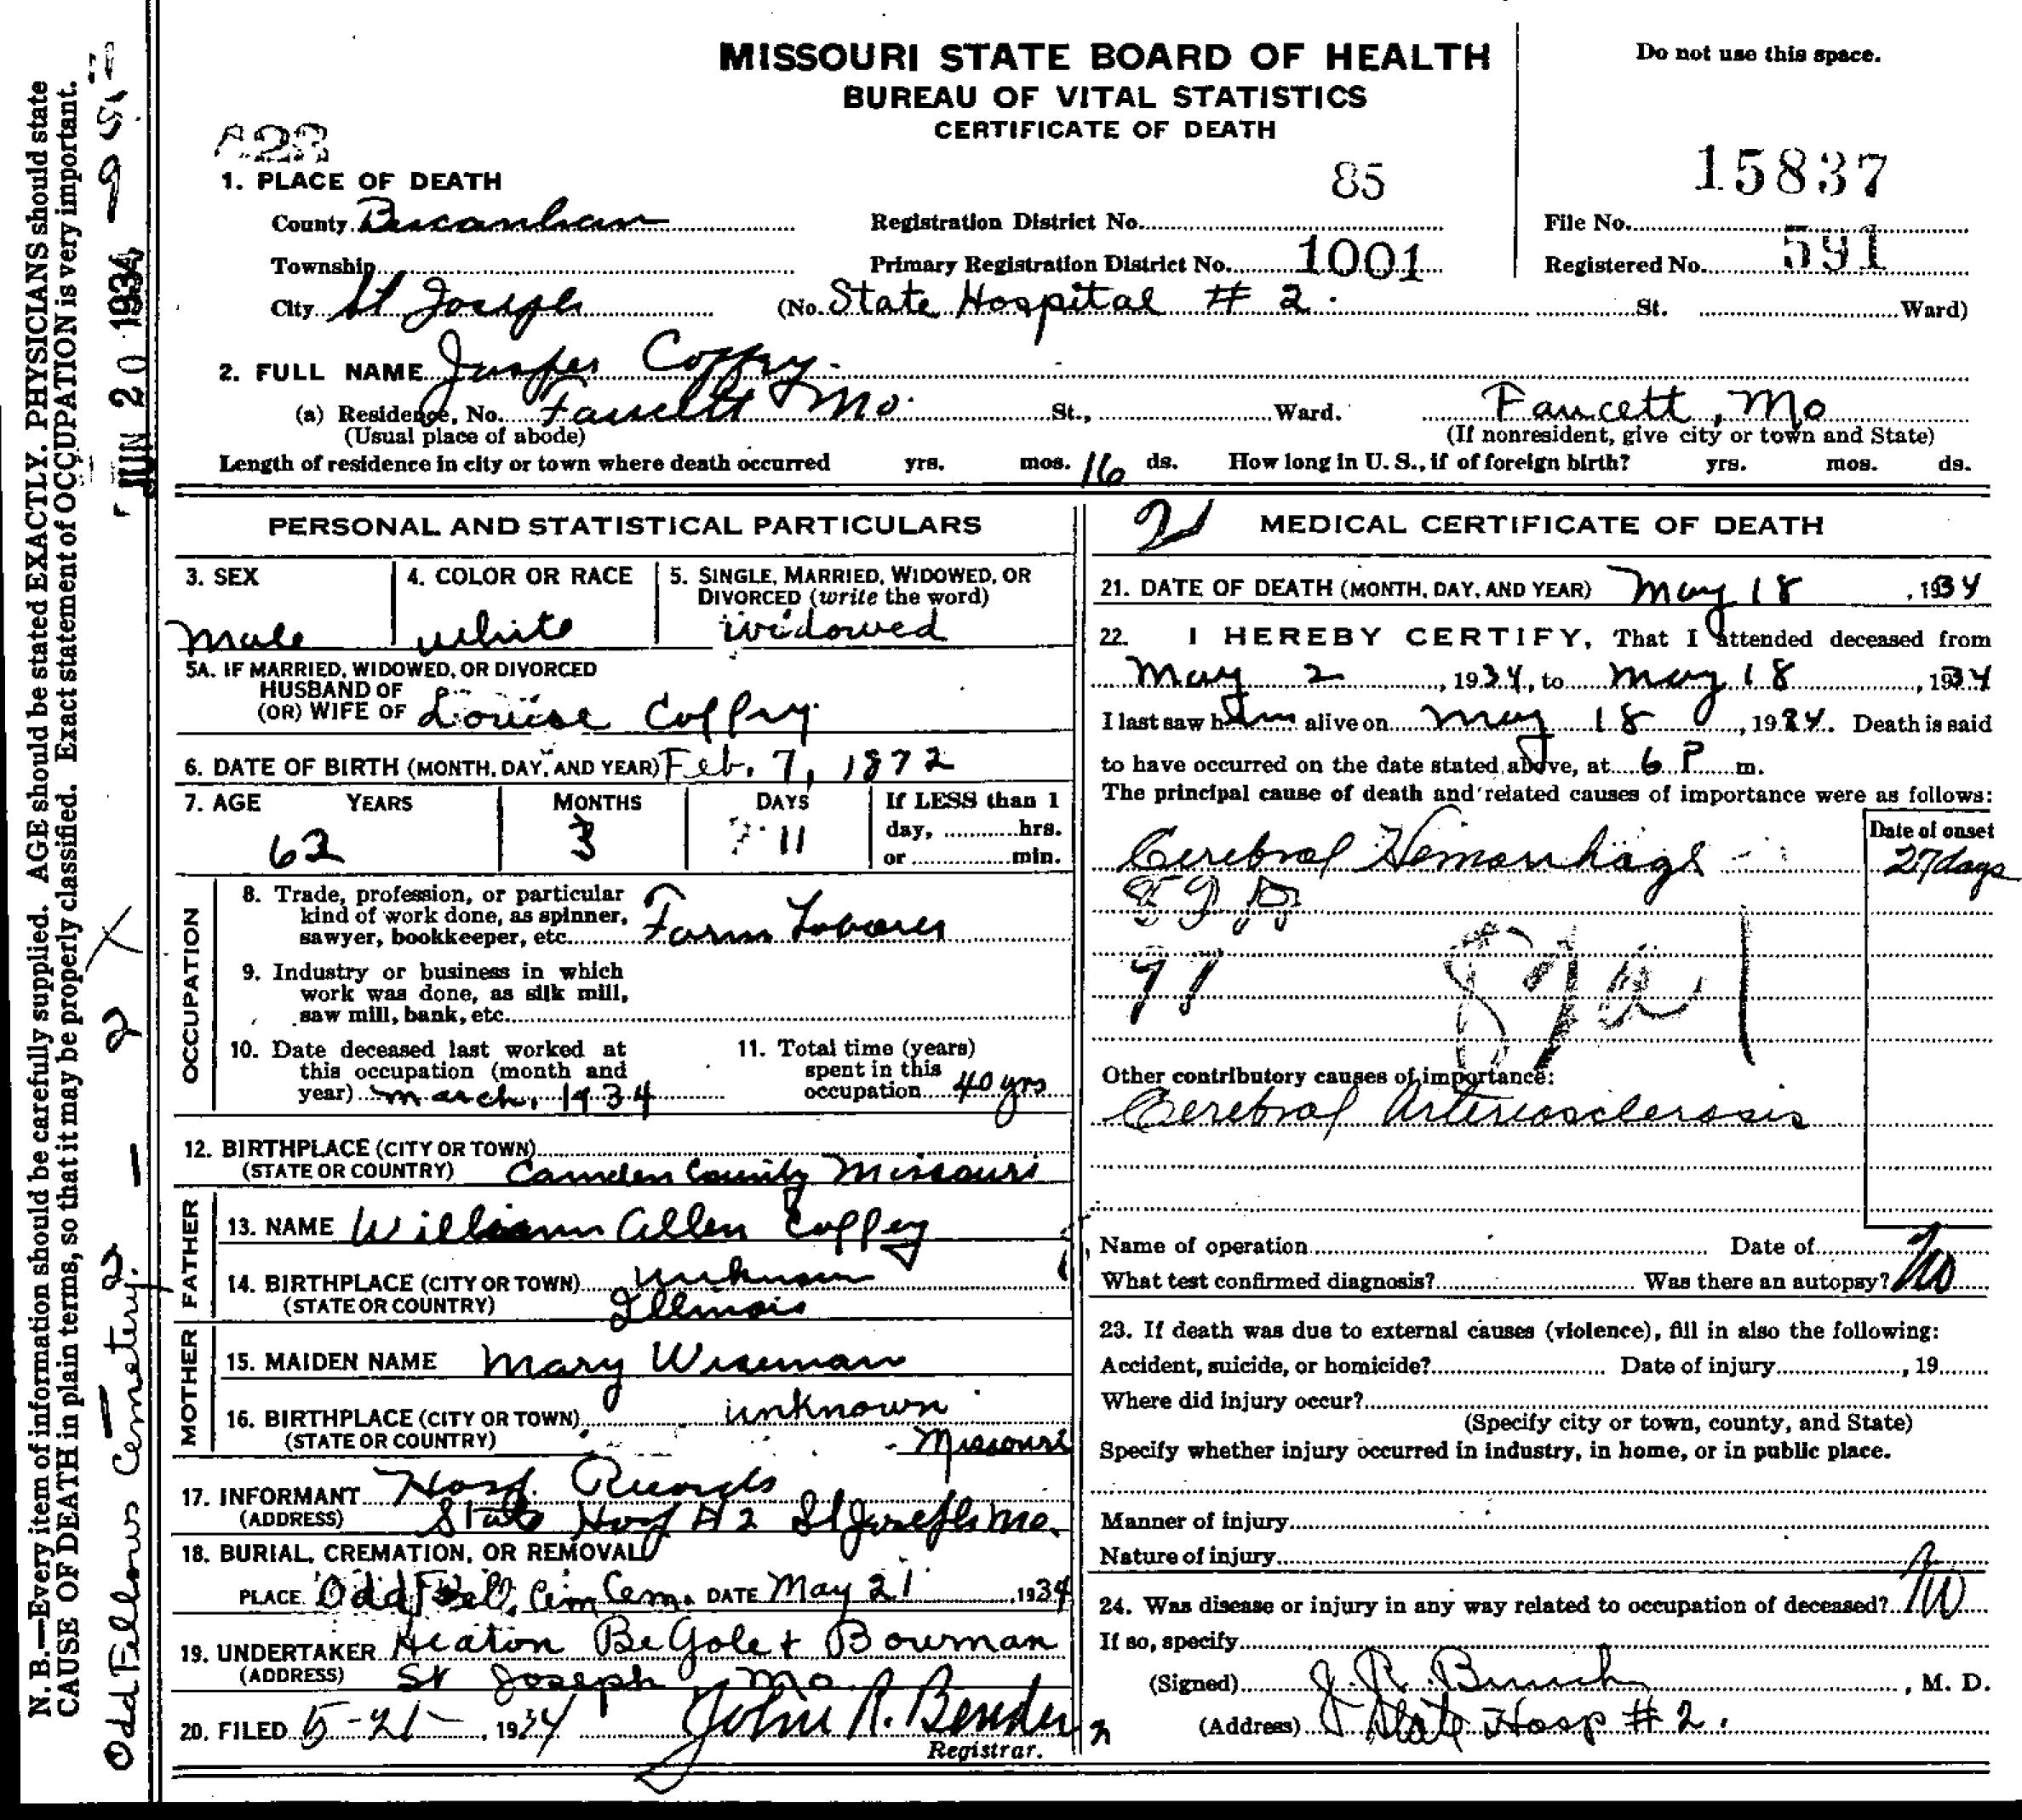 MISSOURI STATE BOARD OF HEALTH
BUREAU OF VITAL STATISTICS
CERTIFICATE OF DEATH
Do not use this space.
15837
1. PLACE OF DEATH
County
Registration District No. 85
File No.
Township
Primary Registration District No. 1001
Registered No. 591
City St Joseph (No. State Hospital # 2. St. Ward)
2. FULL NAME Jasper Coffey
(a) Residence, No. Faucett Mo. St., Ward. Faucett, Mo
(Usual place of abode) (If nonresident, give city or town and State)
Length of residence in city or town where death occurred yrs. mos. 16 ds. How long in U. S., if of foreign birth? yrs. mos. ds.
PERSONAL AND STATISTICAL PARTICULARS
3. SEX
male
4. COLOR OR RACE
white
5. SINGLE, MARRIED, WIDOWED, OR
DIVORCED (write the word)
widowed
5A. IF MARRIED, WIDOWED, OR DIVORCED
HUSBAND OF
(OR) WIFE OF Louise Coffey
6. DATE OF BIRTH (MONTH, DAY, AND YEAR) Feb. 7, 1872
7. AGE YEARS MONTHS DAYS If LESS than 1
day, hrs.
or min.
62 3 11
OCCUPATION
8. Trade, profession, or particular
kind of work done, as spinner,
sawyer, bookkeeper, etc. Farm Laborer
9. Industry or business in which
work was done, as silk mill,
saw mill, bank, etc.
10. Date deceased last worked at
this occupation (month and
year) march, 1934
11. Total time (years)
spent in this
occupation 40 yrs
12. BIRTHPLACE (CITY OR TOWN)
(STATE OR COUNTRY) Camden County Missouri
FATHER
13. NAME William Allen Coffey
14. BIRTHPLACE (CITY OR TOWN) Unknown
(STATE OR COUNTRY) Illinois
MOTHER
15. MAIDEN NAME Mary Wiseman
16. BIRTHPLACE (CITY OR TOWN) unknown
(STATE OR COUNTRY) Missouri
17. INFORMANT Hosp. Records
(ADDRESS) State Hosp # 2 St Joseph Mo.
18. BURIAL, CREMATION, OR REMOVAL
PLACE Odd Fell. Cem. DATE May 21 1934
19. UNDERTAKER Heaton BeGole + Bowman
(ADDRESS) St Joseph Mo.
20. FILED 5-21-, 1934 John R. Bender
Registrar.
2 MEDICAL CERTIFICATE OF DEATH
21. DATE OF DEATH (MONTH, DAY, AND YEAR) May 18, 1934
22. I HEREBY CERTIFY, That I attended deceased from
May 2, 1934, to May 18, 1934
I last saw him alive on May 18, 1934. Death is said
to have occurred on the date stated above, at 6 P m.
The principal cause of death and related causes of importance were as follows:
Date of onset
Cerebral Hemorrhage 27 days
Other contributory causes of importance:
Cerebral Arteriosclerosis
Name of operation Date of
What test confirmed diagnosis? Was there an autopsy? No
23. If death was due to external causes (violence), fill in also the following:
Accident, suicide, or homicide? Date of injury, 19
Where did injury occur?
(Specify city or town, county, and State)
Specify whether injury occurred in industry, in home, or in public place.
Manner of injury
Nature of injury
24. Was disease or injury in any way related to occupation of deceased? No
If so, specify
(Signed) J. R. Bunch, M. D.
(Address) State Hosp # 2.
N. B.—Every item of information should be carefully supplied. AGE should be stated EXACTLY. PHYSICIANS should state
CAUSE OF DEATH in plain terms, so that it may be properly classified. Exact statement of OCCUPATION is very important.
Odd Fellows Cemetery.
JUN 20 1934